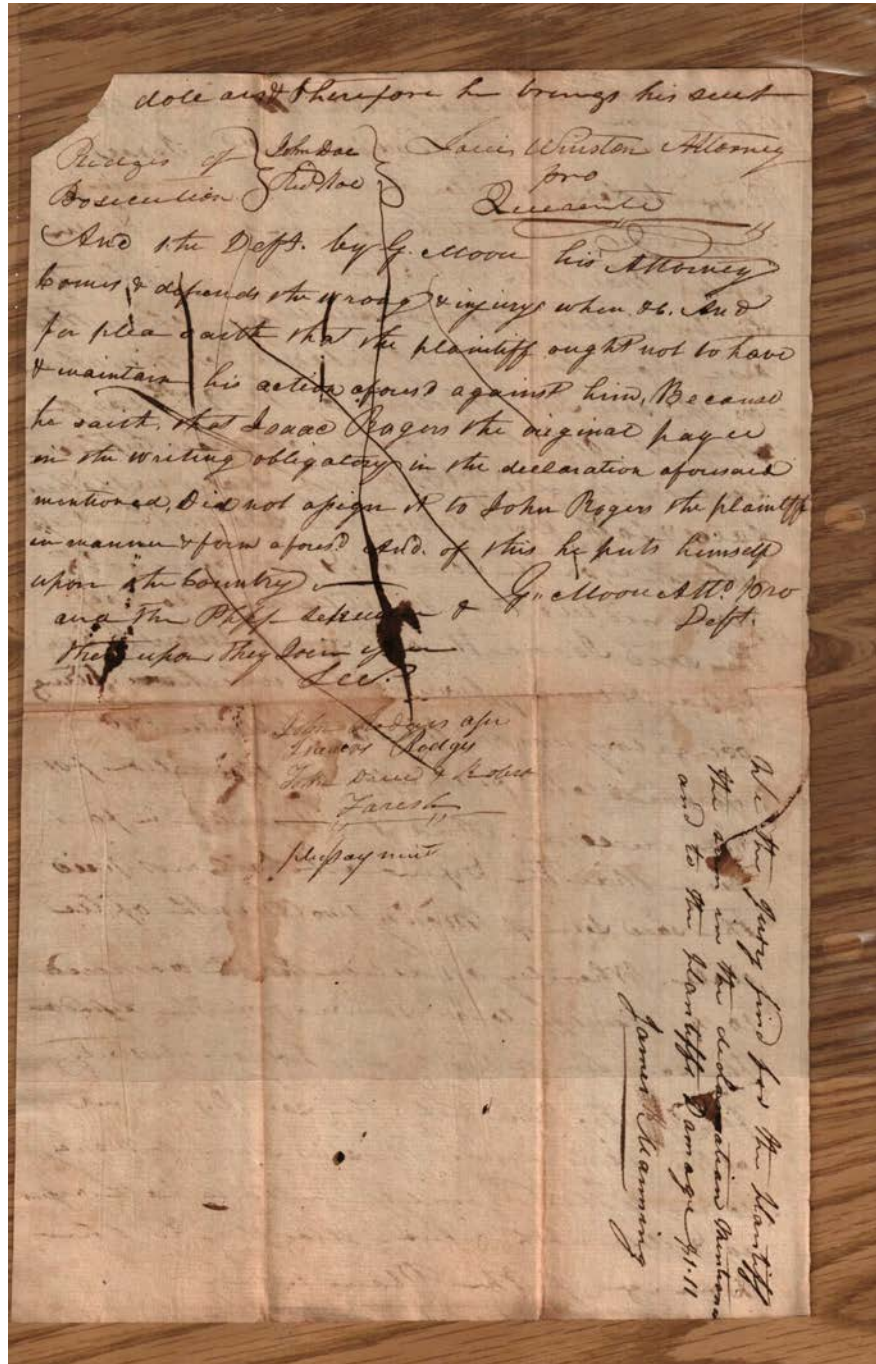 dole and therefore he brings his suit
Pledges of } John Doe } Louis Winston Attorney
Prosecution } Rid Roe } pro
Querente
And the Deft. by G. Moon his Attorney
Comes & defends the wrong & injury when &c. And
for plea saith that the plaintiff ought not to have
& maintain his action aforesd against him, Because
he saith, that Isaac Rogers the original payee
in the writing obligatory in the declaration aforesaid
mentioned, Did not assign it to John Rogers the plaintiff
in manner & form aforesd. And. of this he puts himself
upon the Country
G. Moon Atto. pro
Deft.
and the &
thereupon they Join
John assr
Rodgers
John & Robert
plea payment
We the Jury find for the Plantiff
the sum in the declaration Mentiond
and to the plantiffs Damage
James Manning